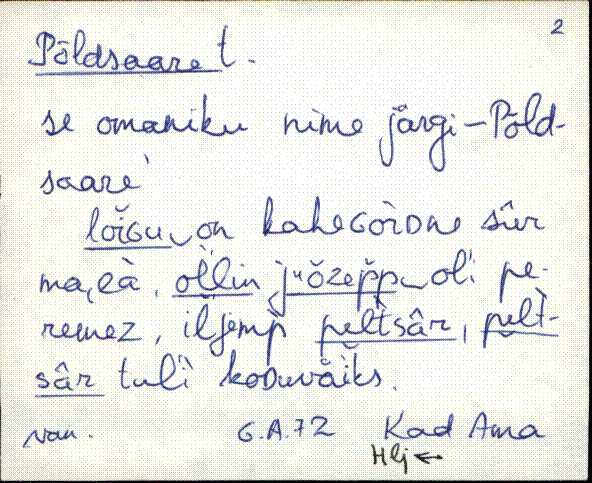 2
Põldsaare t.
se omaniku nime järgi - Põld-
saare
lŏĭGu on kaheGòrDne sûr
ma, eà, ol̆lin jŏzep̆p oli pe-
remez, iljemp̀ pelt̀sâr, pelt̀-
sâr tuli koDuvăĭks.
van. G.A.72 Kad Ama
Hlj ←